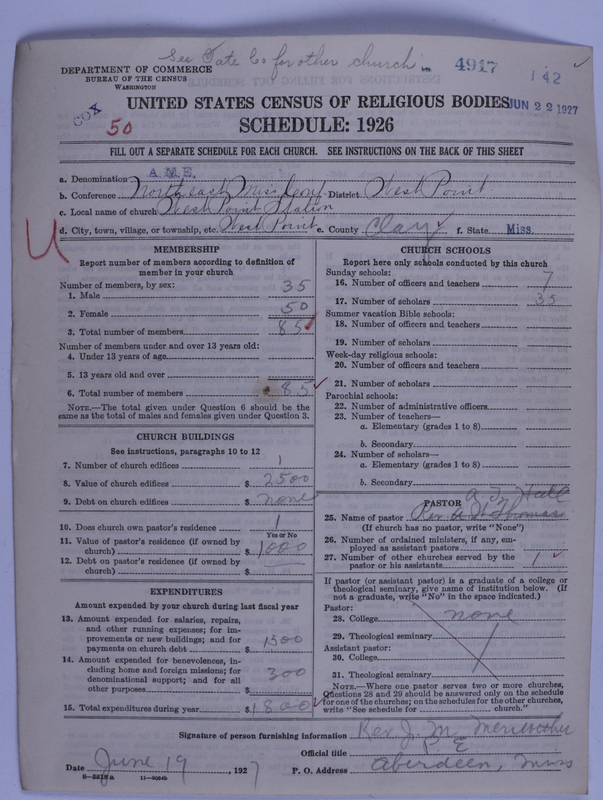 See Tate Co for other church
4917
142
DEPARTMENT OF COMMERCE
BUREAU OF THE CENSUS
WASHINGTON
COX
50
UNITED STATES CENSUS OF RELIGIOUS BODIES
JUN 22 1927
SCHEDULE: 1926
FILL OUT A SEPARATE SCHEDULE FOR EACH CHURCH. SEE INSTRUCTIONS ON THE BACK OF THIS SHEET
a. Denomination A.M.E.
b. Conference Northeast Miss Conf District West Point
c. Local name of church West Point Station
d. City, town, village, or township, etc. West Point e. County Clay f. State Miss.
MEMBERSHIP
Report number of members according to definition of
member in your church
Number of members, by sex:
1. Male 35
2. Female 50
3. Total number of members 85
Number of members under and over 13 years old:
4. Under 13 years of age
5. 13 years old and over
6. Total number of members 85
NOTE.—The total given under Question 6 should be
the same as the total of males and females given under Question 3.
CHURCH BUILDINGS
See instructions, paragraphs 10 to 12
7. Number of church edifices 1
8. Value of church edifices $ 2500
9. Debt on church edifices $ none
10. Does church own pastor's residence 1
Yes or No
11. Value of pastor's residence (if owned by
church) $ 1000
12. Debt on pastor's residence (if owned by
church) $
EXPENDITURES
Amount expended by your church during last fiscal year
13. Amount expended for salaries, repairs,
and other running expenses; for im-
provements or new buildings; and for
payments on church debt $ 1500
14. Amount expended for benevolences, in-
cluding home and foreign missions; for
denominational support; and for all
other purposes $ 300
15. Total expenditures during year $ 1800
CHURCH SCHOOLS
Report here only schools conducted by this church
Sunday schools:
16. Number of officers and teachers 7
17. Number of scholars 35
Summer vacation Bible schools:
18. Number of officers and teachers
19. Number of scholars
Week-day religious schools:
20. Number of officers and teachers
21. Number of scholars
Parochial schools:
22. Number of administrative officers
23. Number of teachers—
a. Elementary (grades 1 to 8)
b. Secondary
24. Number of scholars—
a. Elementary (grades 1 to 8)
b. Secondary
PASTOR
Hall
25. Name of pastor Rev Thomas
(If church has no pastor, write "None")
26. Number of ordained ministers, if any, em-
ployed as assistant pastors
27. Number of other churches served by the
pastor or his assistants 1
If pastor (or assistant pastor) is a graduate of a college or
theological seminary, give name of institution below. (If
not a graduate, write "No" in the space indicated.)
Pastor:
28. College none
29. Theological seminary
Assistant pastor:
30. College
31. Theological seminary
NOTE.—Where one pastor serves two or more churches,
Questions 28 and 29 should be answered only on the schedule
for one of the churches; on the schedules for the other churches,
write "See schedule for church."
Signature of person furnishing information Rev J. M.
Official title P. E
Date June 19, 1927 P. O. Address Aberdeen, Miss